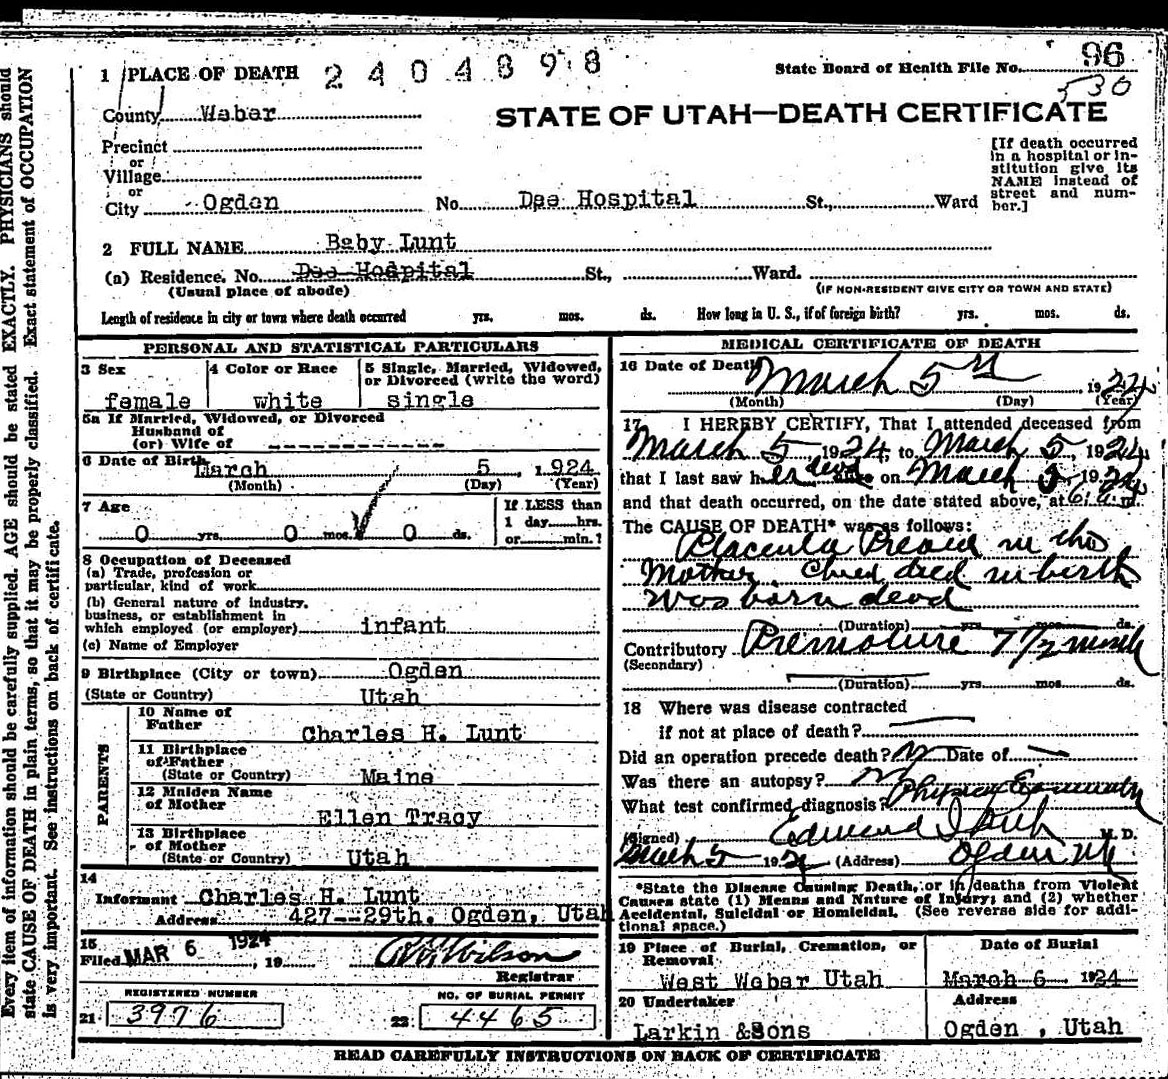 1 PLACE OF DEATH 2404898
State Board of Health File No. 96
530
County Weber
STATE OF UTAH—DEATH CERTIFICATE
Precinct
or
Village
or
City Ogden No. Dee Hospital St., Ward
[If death occurred
in a hospital or in-
stitution give its
NAME instead of
street and num-
ber.]
2 FULL NAME Baby Lunt
(a) Residence. No. Dee Hospital St., Ward.
(Usual place of abode) (IF NON-RESIDENT GIVE CITY OR TOWN AND STATE)
Length of residence in city or town where death occurred yrs. mos. ds. How long in U. S., if of foreign birth? yrs. mos. ds.
PERSONAL AND STATISTICAL PARTICULARS
3 Sex 4 Color or Race 5 Single, Married, Widowed,
or Divorced (write the word)
female white single
5a If Married, Widowed, or Divorced
Husband of
(or) Wife of
6 Date of Birth March 5 1924
(Month) (Day) (Year)
7 Age If LESS than
1 day hrs.
0 yrs. 0 mos. 0 ds. or min.?
8 Occupation of Deceased
(a) Trade, profession or
particular, kind of work
(b) General nature of industry,
business, or establishment in
which employed (or employer) infant
(c) Name of Employer
9 Birthplace (City or town) Ogden
(State or Country) Utah
PARENTS
10 Name of
Father Charles H. Lunt
11 Birthplace
of Father
(State or Country) Maine
12 Maiden Name
of Mother Ellen Tracy
13 Birthplace
of Mother
(State or Country) Utah
14
Informant Charles H. Lunt
Address 427--29th. Ogden, Utah
15
Filed MAR 6 1924, 19 Wilson
Registrar
REGISTERED NUMBER NO. OF BURIAL PERMIT
21 3976 22 4465
MEDICAL CERTIFICATE OF DEATH
16 Date of Death March 5th 1924
(Month) (Day) (Year)
17 I HEREBY CERTIFY, That I attended deceased from
March 5 1924, to March 5, 1924
that I last saw her dead alive on March 5 1924
and that death occurred, on the date stated above, at 6 a m.
The CAUSE OF DEATH* was as follows:
Placenta Previa in the
Mother. Child died in birth
Was born dead
(Duration) yrs. mos. ds.
Contributory Premature 7 1/2 month
(Secondary)
(Duration) yrs. mos. ds.
18 Where was disease contracted
if not at place of death?
Did an operation precede death? No Date of
Was there an autopsy? No
What test confirmed diagnosis? Physical
(Signed) Edmund M. D.
March 5 1924 (Address) Ogden Ut
*State the Disease Causing Death, or in deaths from Violent
Causes state (1) Means and Nature of Injury; and (2) whether
Accidental, Suicidal or Homicidal. (See reverse side for addi-
tional space.)
19 Place of Burial, Cremation, or Date of Burial
Removal
West Weber Utah March 6 1924
20 Undertaker Address
Larkin &Sons Ogden , Utah
READ CAREFULLY INSTRUCTIONS ON BACK OF CERTIFICATE
Every item of information should be carefully supplied. AGE should be stated EXACTLY. PHYSICIANS should
state CAUSE OF DEATH in plain terms, so that it may be properly classified. Exact statement of OCCUPATION
is very important. See instructions on back of certificate.